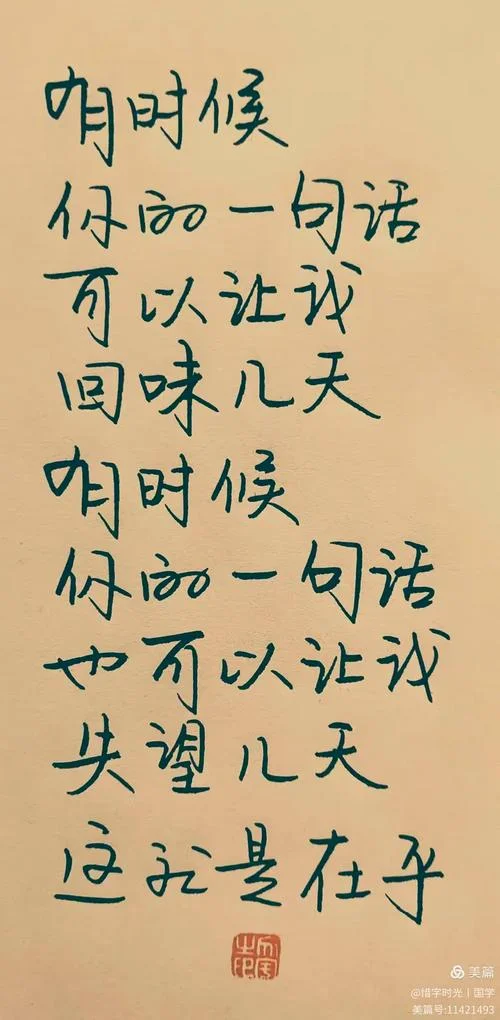 有时候
你的一句话
可以让我
回味几天
有时候
你的一句话
也可以让我
失望几天
这就是在乎
美篇
@惜字时光丨国学
美篇号:11421493